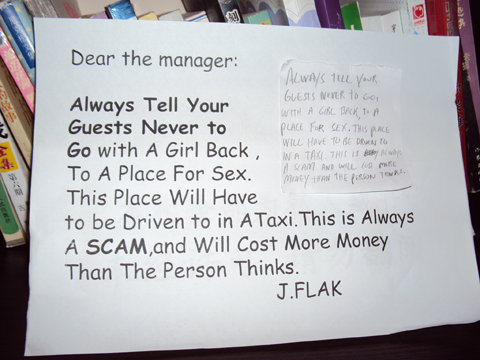 Dear the manager:
Always Tell Your
Guests Never to
Go with A Girl Back ,
To A Place For Sex.
This Place Will Have
to be Driven to in ATaxi.This is Always
A SCAM,and Will Cost More Money
Than The Person Thinks.
J.FLAK
ALWAYS TELL YOUR
GUESTS NEVER TO GO,
WITH A GIRL BACK, TO A
PLACE FOR SEX. THIS PLACE
WILL HAVE TO BE DRIVEN TO
IN A TAXI. THIS IS ALWAYS
A SCAM AND WILL COST MORE
MONEY THAN THE PERSON THINKS.
全集